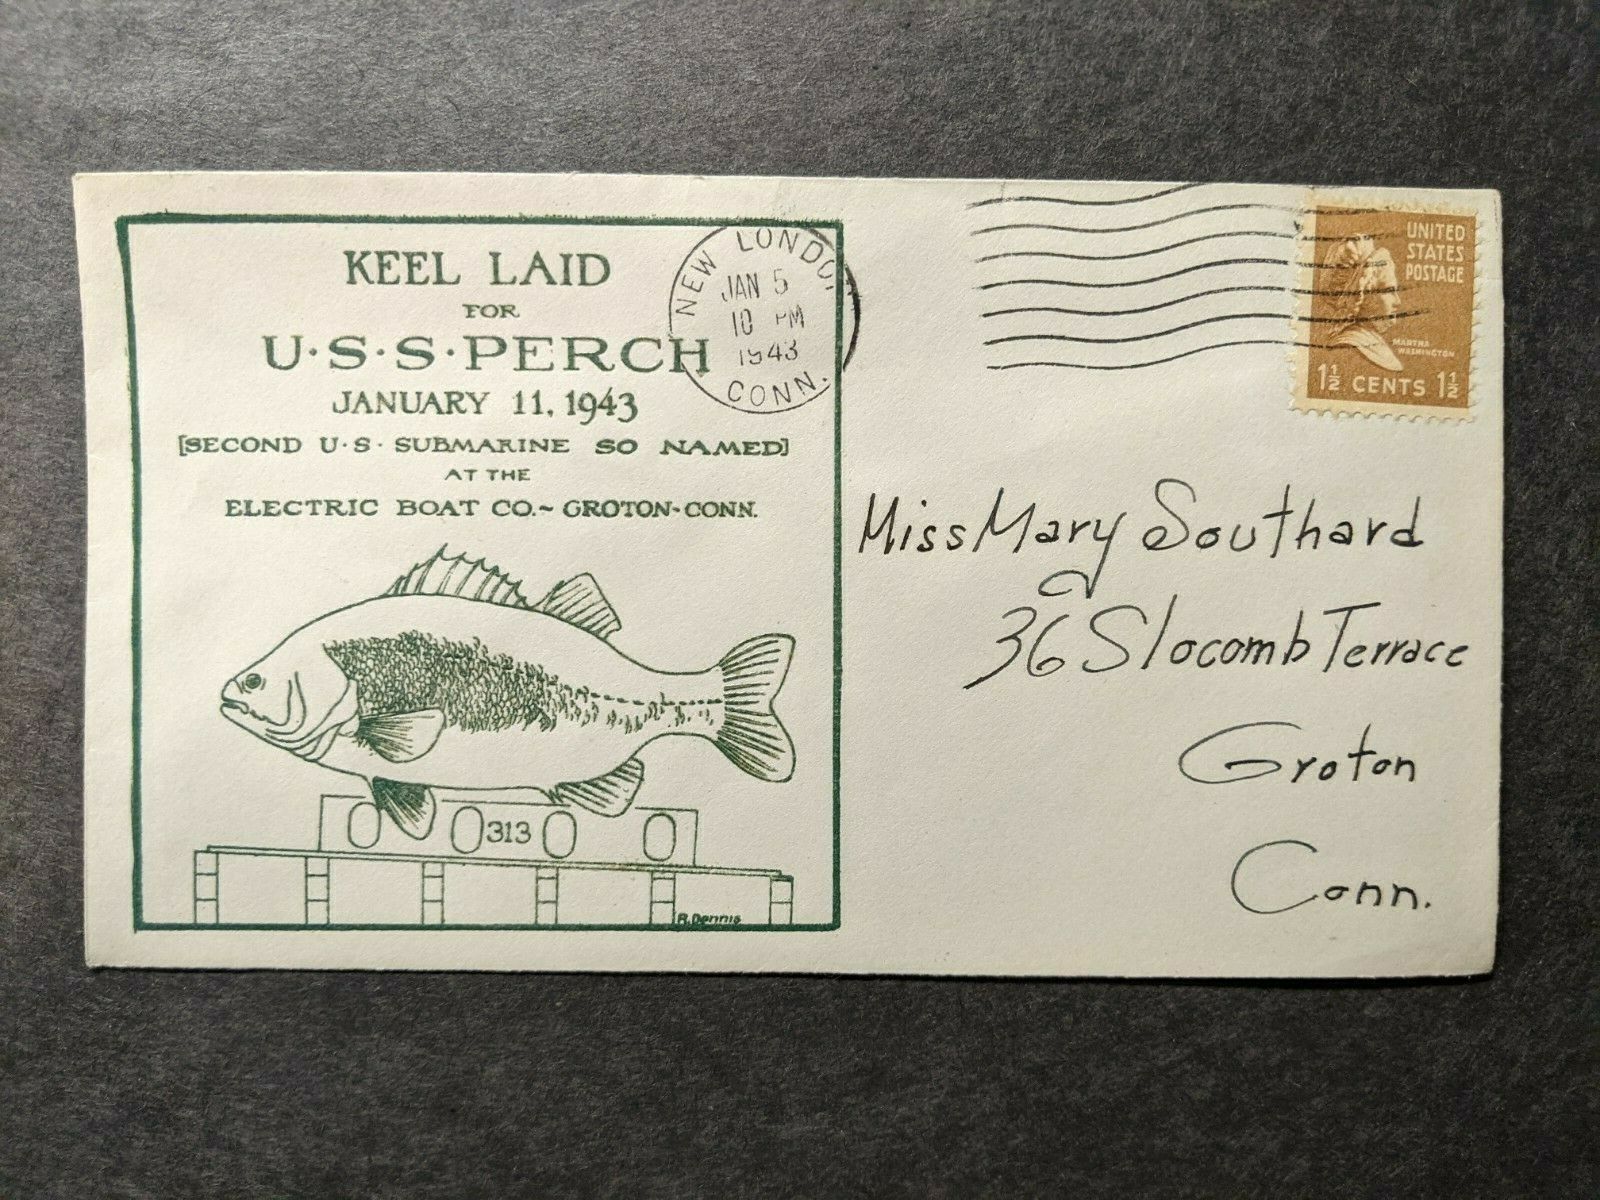 KEEL LAID
FOR
U·S·S·PERCH
JANUARY 11, 1943
[SECOND U·S· SUBMARINE SO NAMED]
AT THE
ELECTRIC BOAT CO.~ GROTON-CONN.
313
R. Dennis
NEW LONDON
JAN 5
10 PM
1943
CONN.
UNITED
STATES
POSTAGE
MARTHA
WASHINGTON
1½ CENTS 1½
Miss Mary Southard
36 Slocomb Terrace
Groton
Conn.